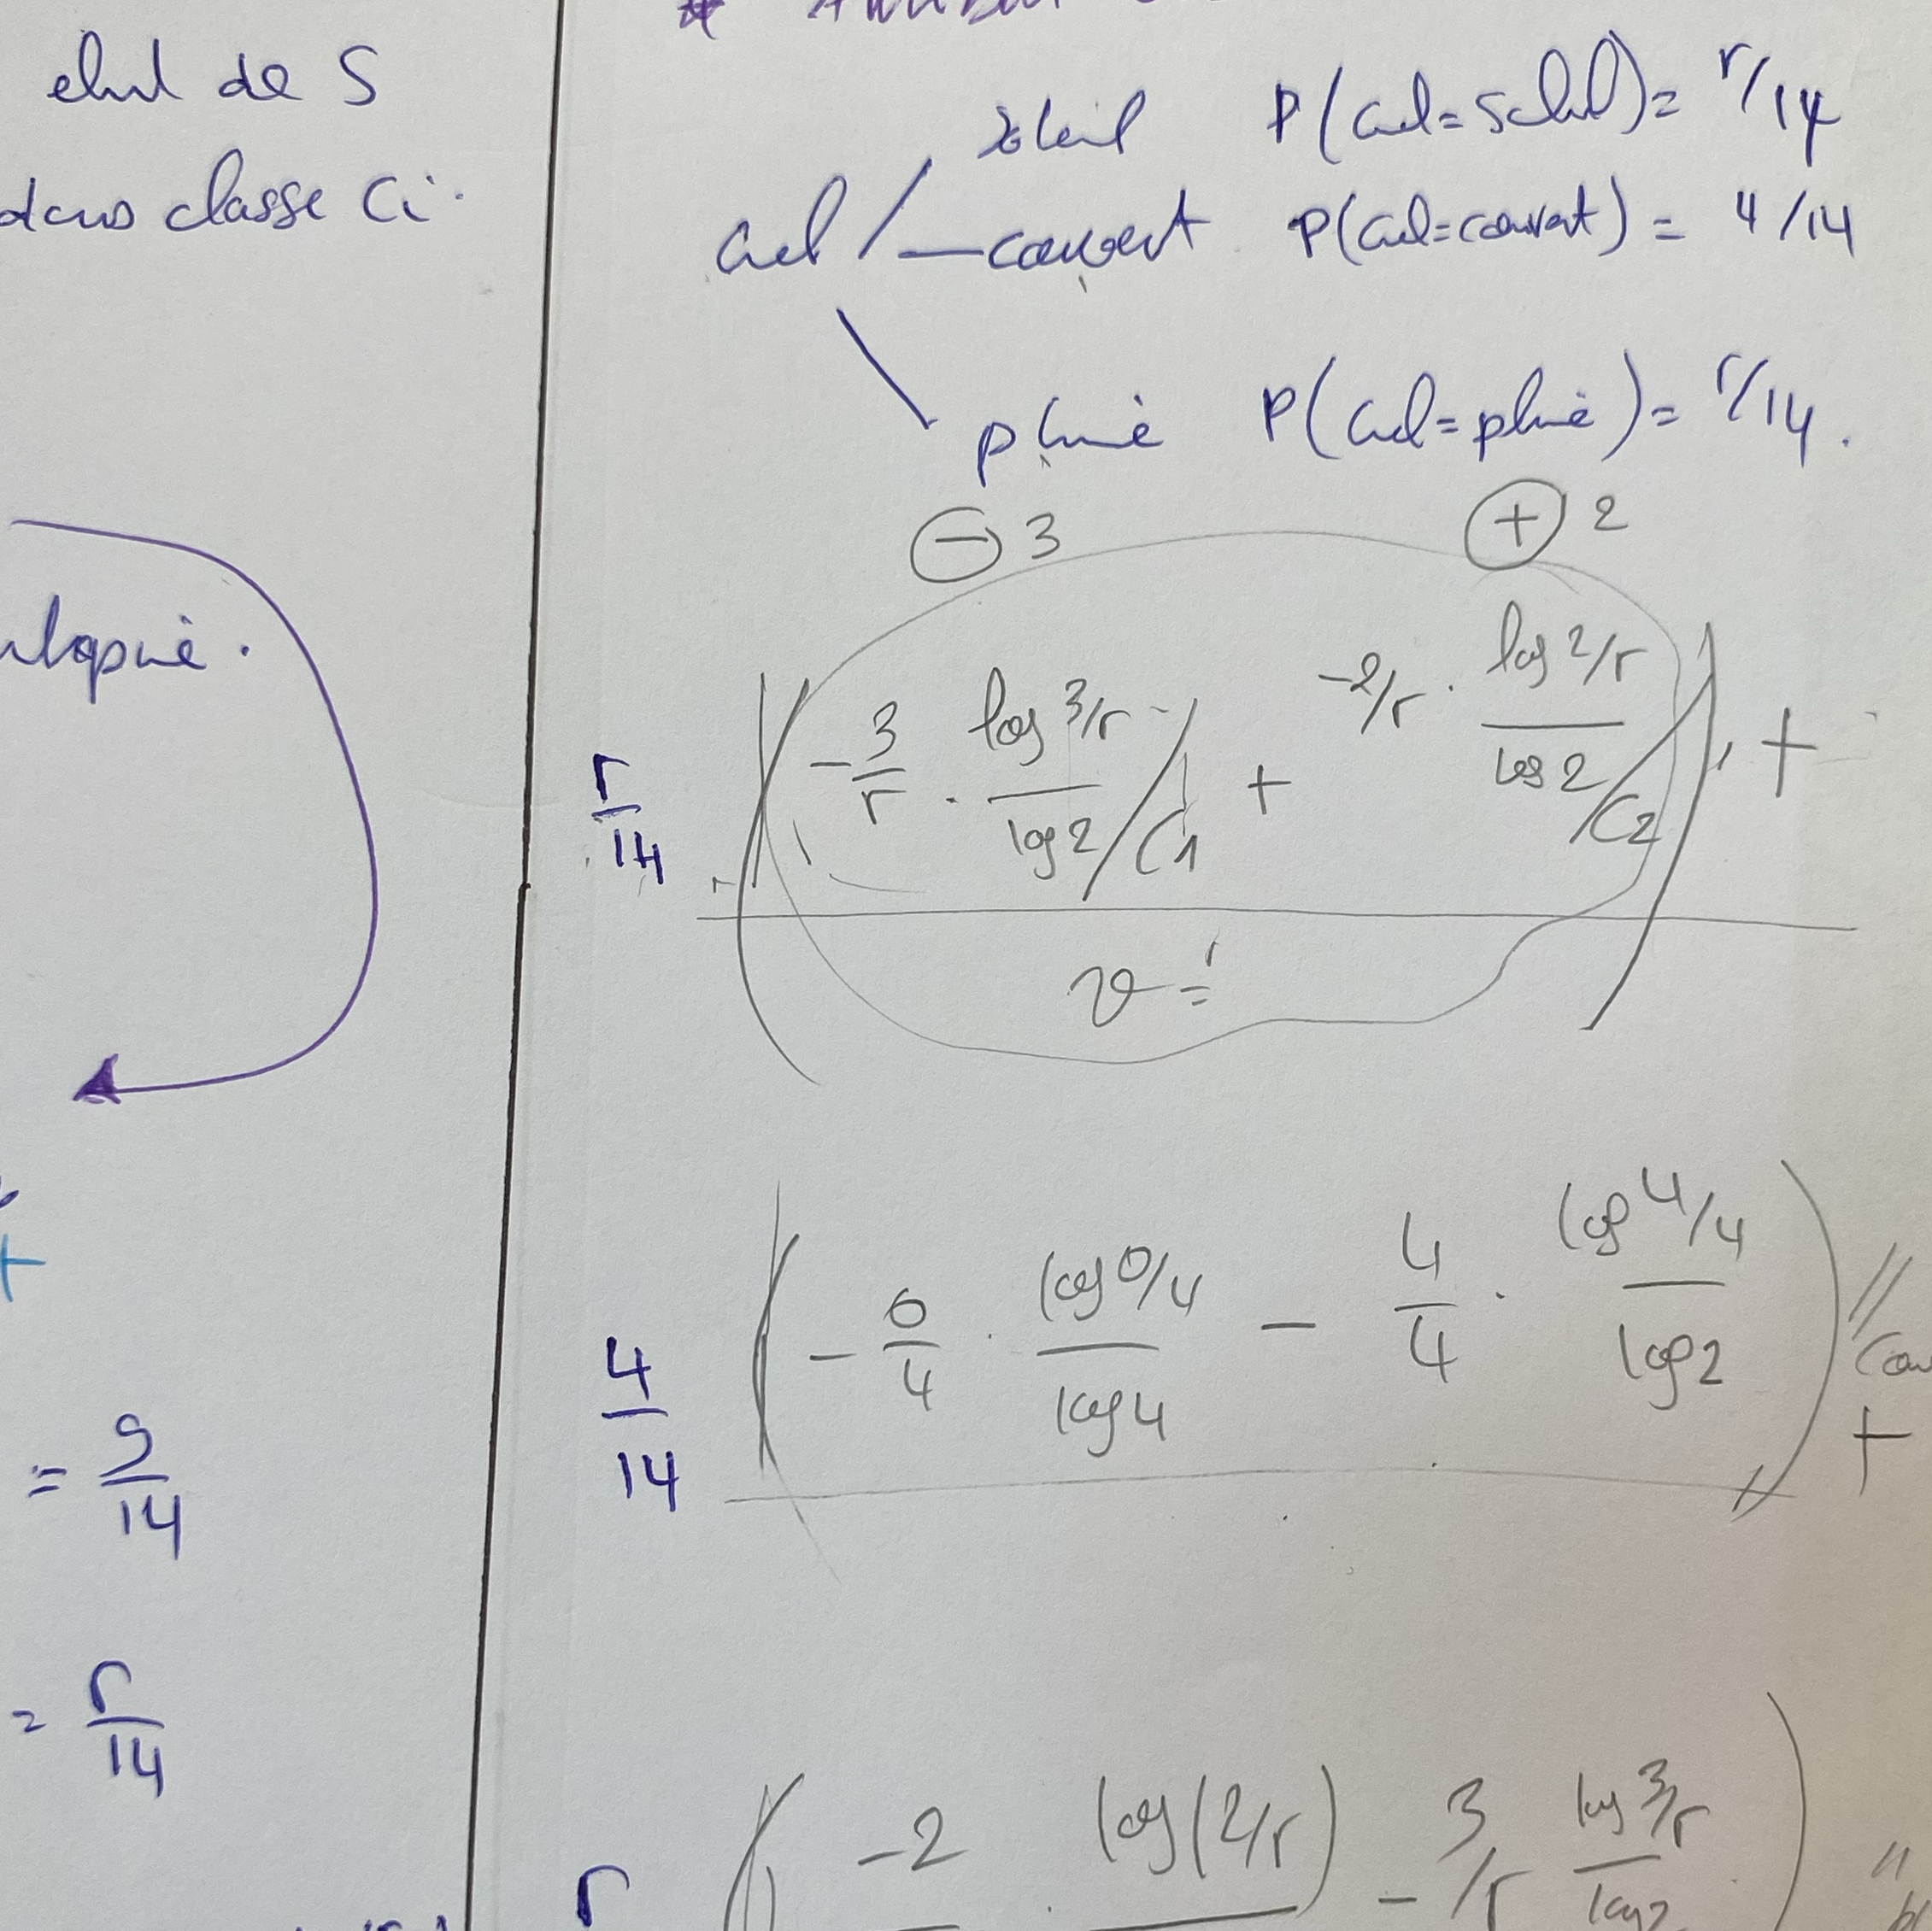 de S
dans classe Ci.
= 9/14
= 5/14
soleil P(ciel=soleil)= 5/14
ciel couvert P(ciel=couvert) = 4/14
pluie P(ciel=pluie)= 5/14.
⊖ 3 ⊕ 2
5/14 ( -3/5 . log 3/5 / log 2 / C1 + -2/5 . log 2/5 / log 2 / C2 ) +
4/14 ( - 0/4 . log 0/4 / log 4 - 4/4 . log 4/4 / log 2 ) // +
5 ( -2 . log(2/5) - 3/5 log 3/5 / log 2 ) "